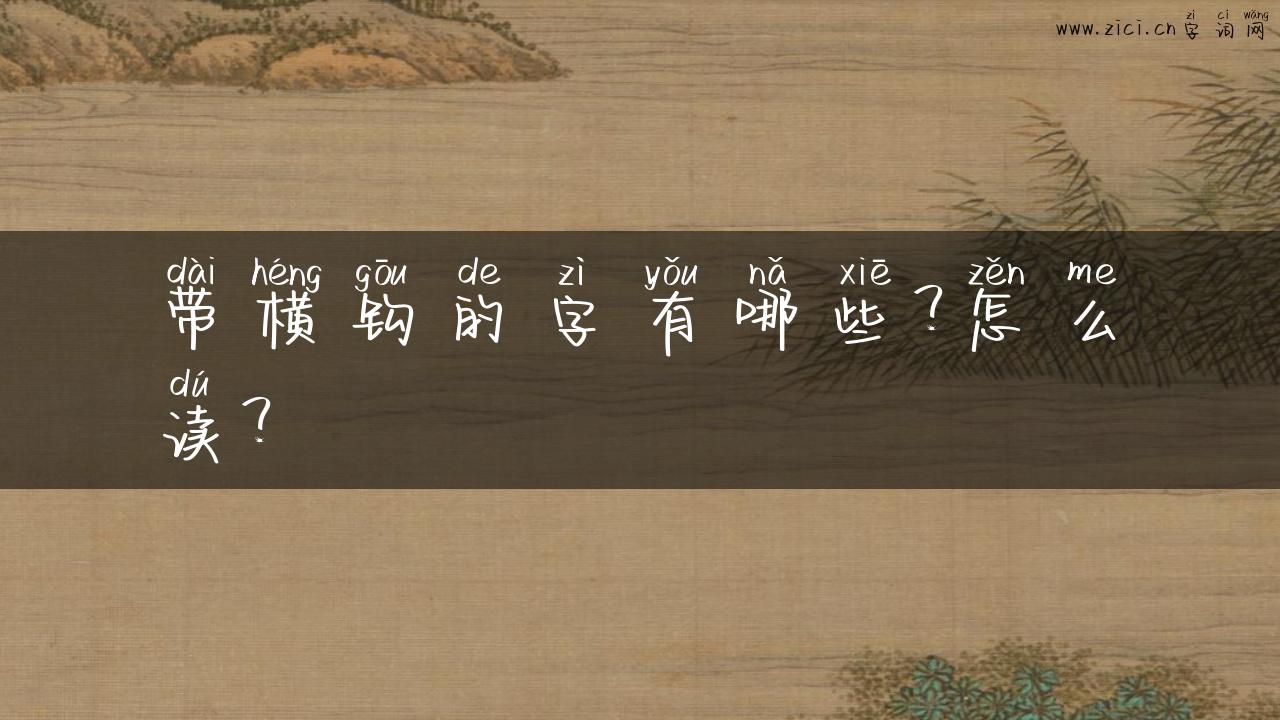 zì cí wǎng
www.zici.cn 字词网
dài héng gōu de zì yǒu nǎ xiē zěn me
带横钩的字有哪些?怎么
dú
读?